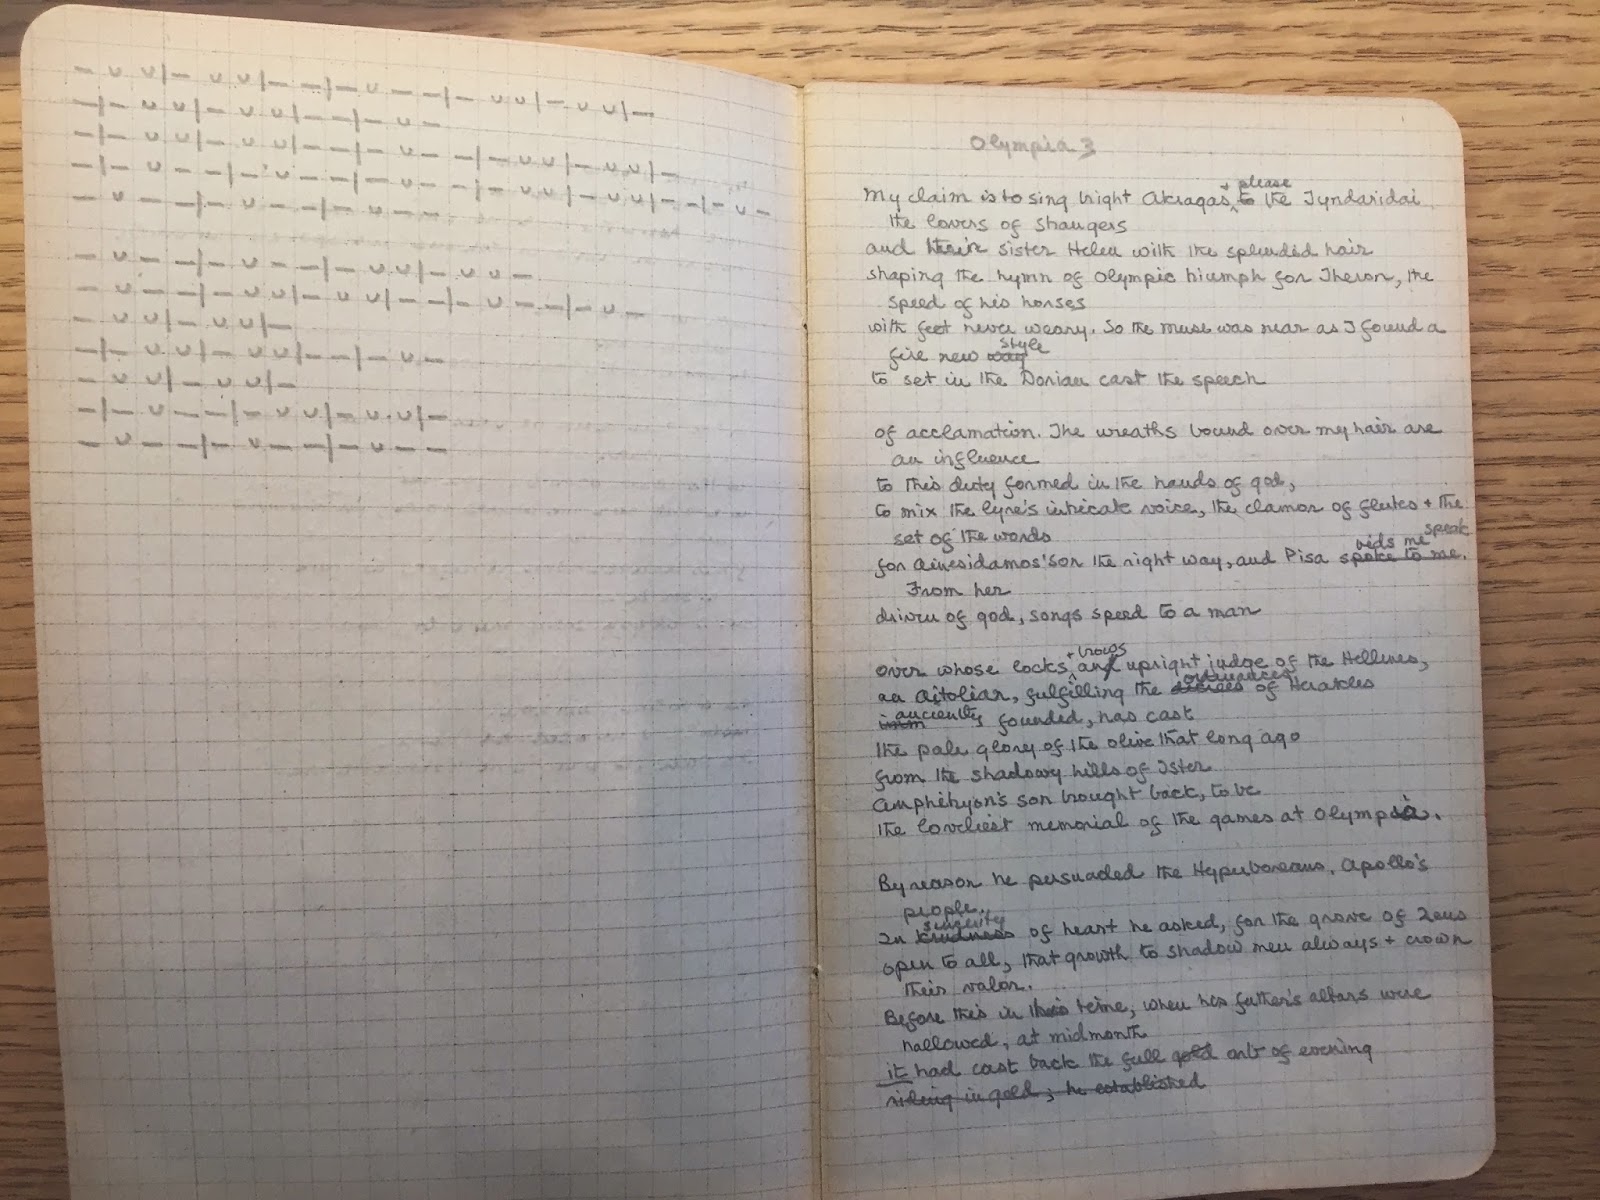 — ᴗ ᴗ|— ᴗ ᴗ|— —|— ᴗ — —|— ᴗ ᴗ|— ᴗ ᴗ|—
—|— ᴗ ᴗ|— ᴗ ᴗ|— —|— ᴗ —
—|— ᴗ ᴗ|— ᴗ ᴗ|— —|— ᴗ — —|— ᴗ ᴗ|— ᴗ ᴗ|—
—|— ᴗ — —|— ᴗ — —|— ᴗ — —|— ᴗ ᴗ|— ᴗ ᴗ|— —|— ᴗ —
— ᴗ — —|— ᴗ — —|— ᴗ —
— ᴗ — —|— ᴗ — —|— ᴗ ᴗ|— ᴗ ᴗ —
— ᴗ — —|— ᴗ ᴗ|— ᴗ ᴗ|— —|— ᴗ — —|— ᴗ —
— ᴗ ᴗ|— ᴗ ᴗ|—
—|— ᴗ ᴗ|— ᴗ ᴗ|— —|— ᴗ —
— ᴗ ᴗ|— ᴗ ᴗ|—
—|— ᴗ — —|— ᴗ ᴗ|— ᴗ ᴗ|—
— ᴗ — —|— ᴗ — —|— ᴗ — —
Olympia 3
My claim is to sing bright Akragas, + please to the Tyndaridai
the lovers of strangers
and their sister Helen with the splendid hair
shaping the hymn of Olympic triumph for Theron, the
speed of his horses
with feet never weary. So the muse was near as I found a
fire new way style
to set in the Dorian cast the speech
of acclamation. The wreaths bound over my hair are
an influence
to this duty formed in the hands of god,
to mix the lyre's intricate voice, the clamor of flutes + the
set of the words
for Ainesidamos' son the right way, and Pisa spoke to me. bids me speak
From her
driven of god, songs speed to a man
over whose locks + brows an upright judge of the Hellenes,
an Aitolian, fulfilling the decrees ordinances of Herakles
anciently founded, has cast
the pale glory of the olive that long ago
from the shadowy hills of Ister
Amphitryon's son brought back, to be
the loveliest memorial of the games at Olympia.
By reason he persuaded the Hyperboreans, Apollo's
people.
In kindness sincerity of heart he asked, for the grove of Zeus
open to all, that growth to shadow men always + crown
their valor.
Before this in his time, when his father's altars were
hallowed, at midmonth
it had cast back the full gold orb of evening
riding in gold; he established